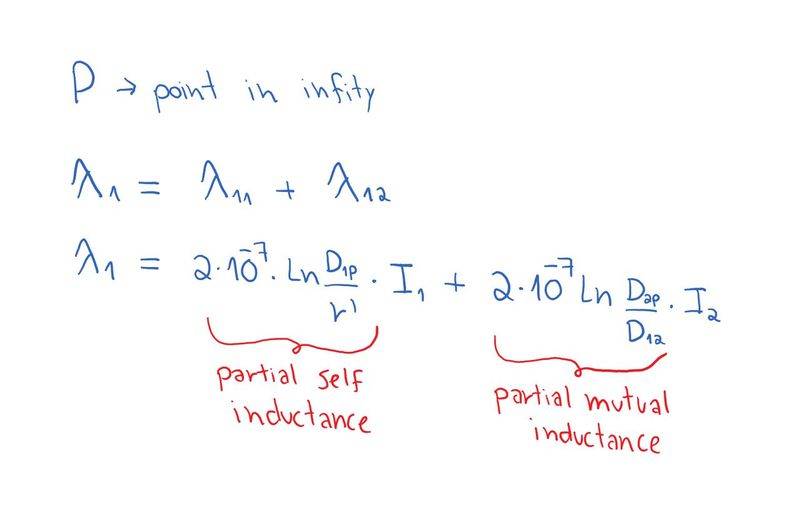 P → point in infity
λ₁ = λ₁₁ + λ₁₂
λ₁ = 2·10⁻⁷· Ln D₁ₚ/r' · I₁ + 2·10⁻⁷ Ln D₂ₚ/D₁₂ · I₂
partial self
inductance
partial mutual
inductance